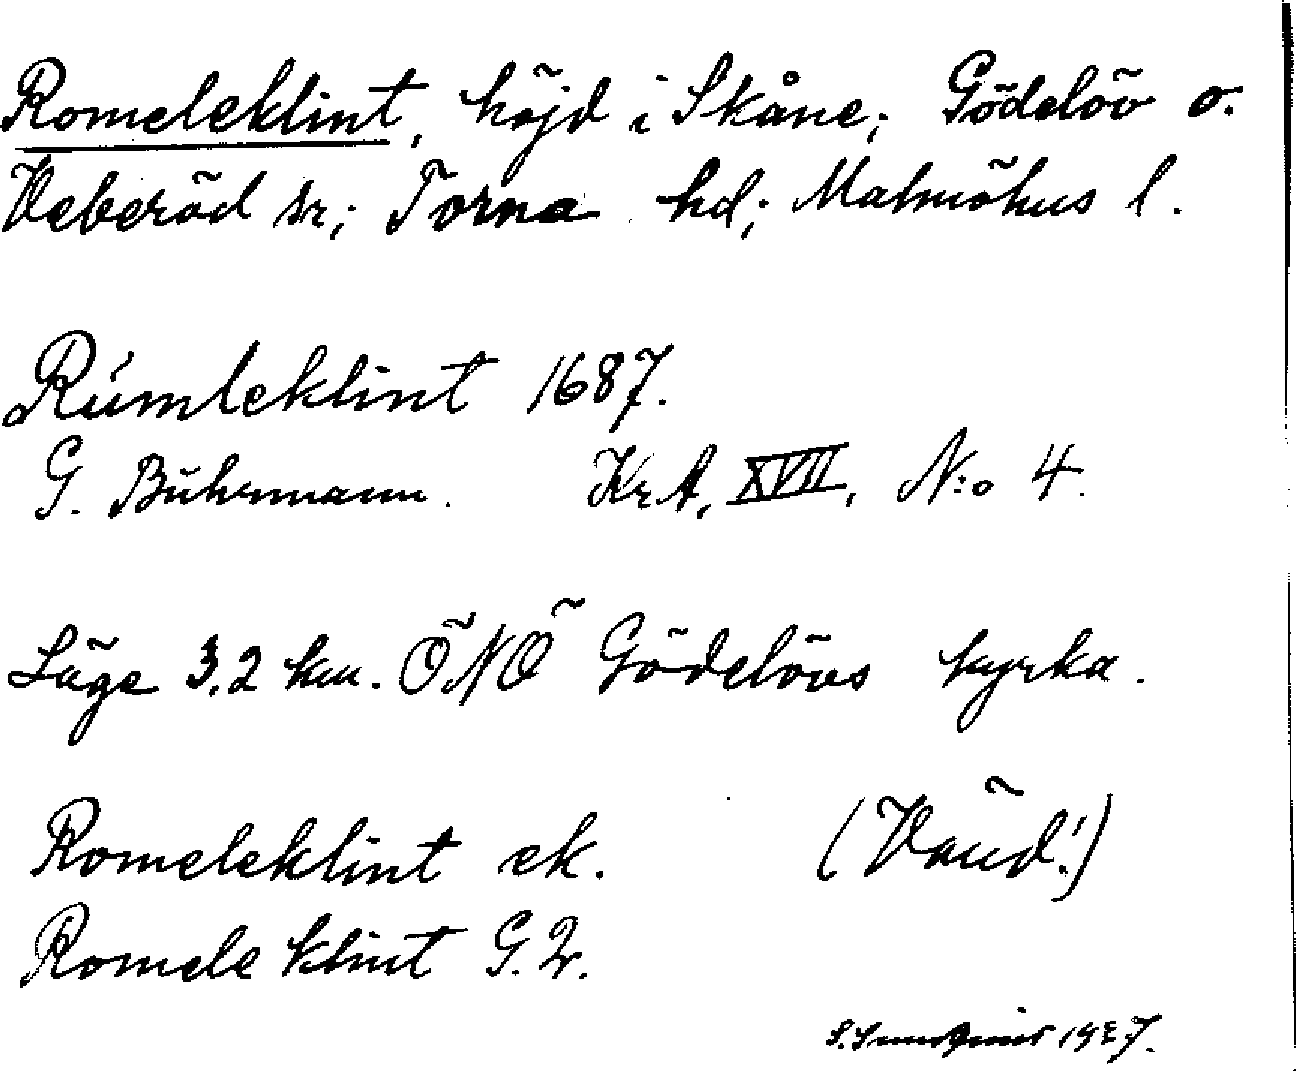 Romeleklint, höjd i Skåne; Gödelöv o.
Veberöd sr; Torna hd; Malmöhus l.
Rúmleklint 1687.
G. Buhrmann. KrA, XVII, N:o 4.
Läge 3,2 km. ÖNÖ Gödelövs kyrka.
Romeleklint ek. (Vänd!)
Romele klint G.
1927.